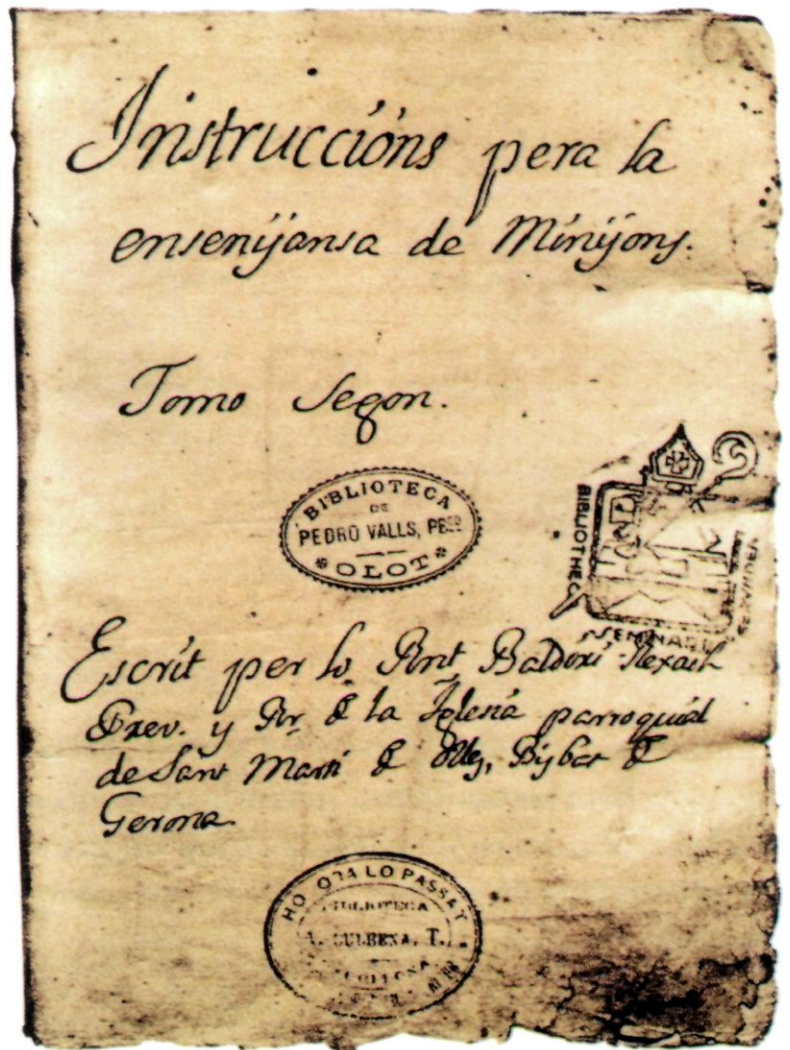 Instruccións pera la
ensenÿansa de Minÿons.
Tomo Segon.
BIBLIOTECA
DE
PEDRO VALLS, PBRO
OLOT
BIBLIOTHEC
SEMINARI
Escrit per lo Rnt Baldiri Rexach
Prev. y Rr. de la Iglesia parroquial
de Sant Martí de Ollés, Bisbat de
Gerona
HO ORA LO PASSAT
BIBLIOTECA
A. BULBENA. T.